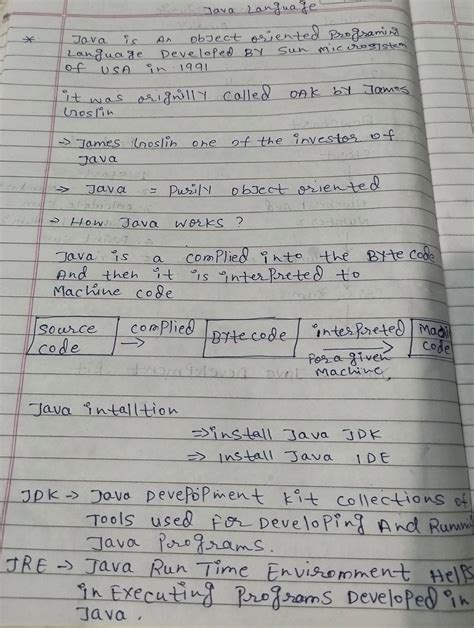 Java Language
* Java is An object oriented Programing
Language Developed By Sun microsistem
of USA in 1991
it was orignilly called OAK by James
Goslin
→ James Goslin one of the investor of
Java
→ Java = Purily object oriented
→ How Java works ?
Java is a complied into the Byte code
And then it is interpreted to
Machine code
source complied Byte code interpreted Machi
code → → code
For a given
Machine
Java intalltion
⇒ install Java JDK
⇒ install Java IDE
JDK → Java Devepopment kit collections of
Tools used For Developing And Runni
Java Programs.
JRE → Java Run Time Enviromment Helps
in Executing Programs Developed in
Java.